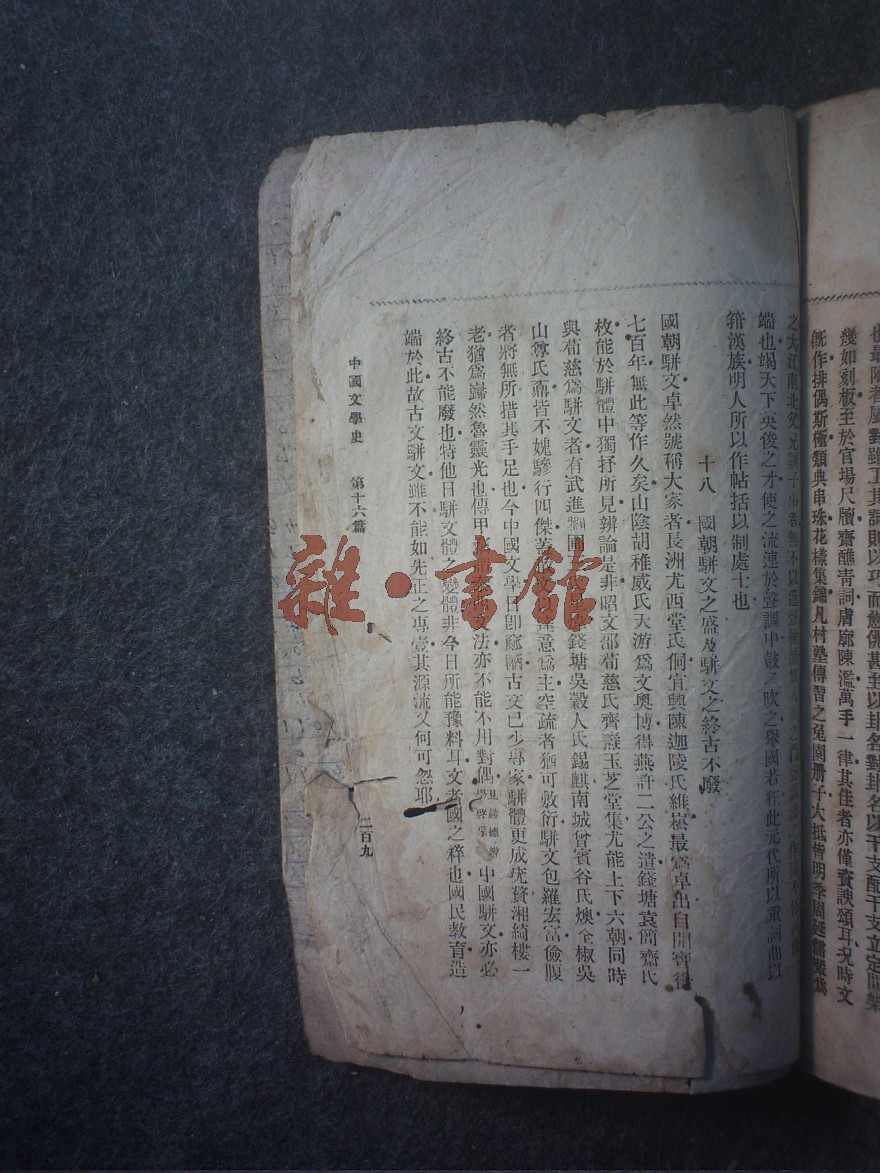 也最陋者屬對雖工其詞則以巧而
甚至以卦名對卦名以干支配干支立定間架
幾如刻板至於官場尺牘齋醮靑詞膚廓陳濫萬手一律其佳者亦僅資諛頌耳况時文
旣作排偶斯極類典串珠花樣集錦凡村塾傳習之兔園册子大抵皆明季
之大江南北父兄
端也竭天下英俊之才使之流連於聲調中鼓之吹之舉國若狂此元代所以重詞曲以
籍漢族明人所以作帖括以制處士也
十八　國朝駢文之盛及駢文之終古不廢
國朝駢文卓然號稱大家者長洲尤西堂氏侗宜興陳迦陵氏維崧最爲卓出自開寶後
七百年無此等作久矣山陰胡稚威氏天游爲文奧博得燕許二公之遺錢塘袁簡齋氏
枚能於駢體中獨抒所見辨論是非昭文邵荀慈氏齊燾玉芝堂集尤能上下六朝同時
與荀慈爲駢文者有武進劉圃
錢塘吳穀人氏錫麒南城曾賓谷氏燠全椒吳
山尊氏鼒皆不媿驂行四傑蓋
意爲主空疏者猶可敷衍駢文包羅宏富儉腹
者將無所措其手足也今中國文學日卽窳陋古文已少專家駢體更成疣贅湘綺樓一
老猶爲巋然魯靈光也傳甲
文法亦不能不用對偶
中國駢文亦必
終古不能廢也特他日駢文體之變體非今日所能豫料耳文者國之粹也國民敎育造
端於此故古文駢文雖不能如先正之專壹其源流又何可忽耶
中國文學史　第十六篇
二百九
雜·書館